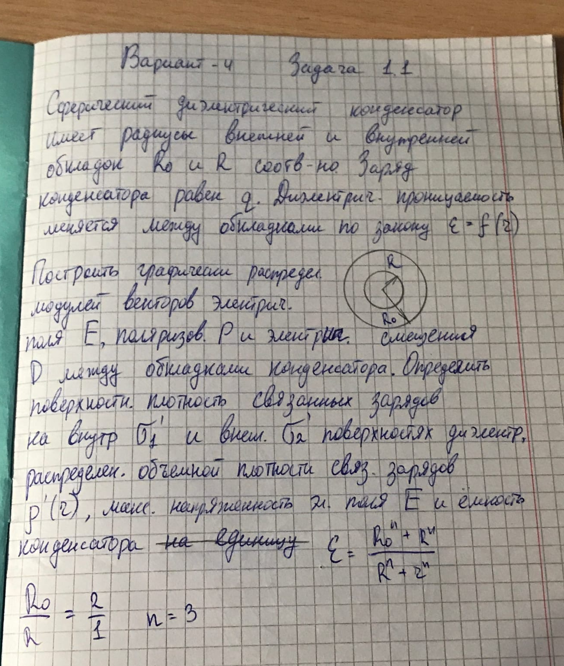 Вариант - 4 Задача 1.1
Сферический диэлектрический конденсатор
имеет радиусы внешней и внутренней
обкладок R₀ и R соотв-но. Заряд
конденсатора равен q. Диэлектрич. проницаемость
меняется между обкладками по закону ε = f(r)
Построить графически распредел.
модулей векторов электрич.
поля E, поляризов. P и электрич. смещения
D между обкладками конденсатора. Определить
поверхностн. плотность связанных зарядов
на внутр σ₁' и внеш. σ₂' поверхностях диэлектр.,
распределен. объемной плотности связ. зарядов
ρ'(r), макс. напряженность эл. поля E и ёмкость
конденсатора на единицу ε = (R₀ⁿ + Rⁿ)/(Rⁿ + rⁿ)
R₀/R = 2/1 n = 3
R
R₀